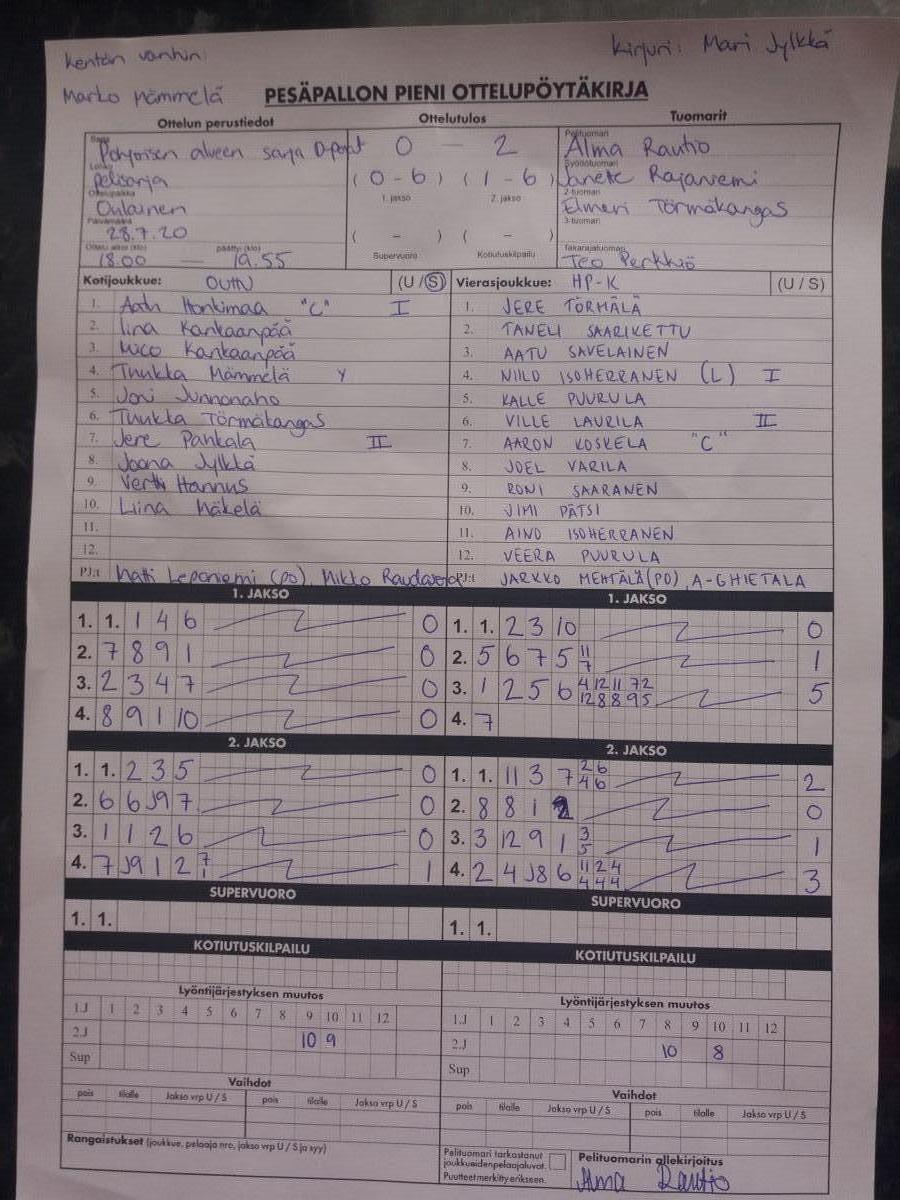 Kentän vanhin:
Kirjuri: Mari Jylkkä
Marko Mämmelä
PESÄPALLON PIENI OTTELUPÖYTÄKIRJA
Ottelun perustiedot Ottelutulos Tuomarit
Sarja Pohjoisen alueen sarja D-pojat 0 – 2 Pelituomari Alma Rautio
Lohko pelisarja (0-6) (1-6) Syöttötuomari Janete Rajaniemi
Ottelupaikka Oulainen 1. jakso 2. jakso 2-tuoman Elmeri Törmäkangas
Päivämäärä 28.7.20 ( – ) ( – ) 3-tuoman
Ottelu alkoi (klo) 18.00 — päättyi (klo) 19.55 Supervuoro Kotiutuskilpailu Takarajatuomari Teo Perkkiö
Kotijoukkue: OUHU (U / S) Vierasjoukkue: HP-K (U / S)
1. Honkimaa "C" I 1. JERE TÖRMÄLÄ
2. Iina Kankaanpää 2. TANELI SAARIKETTU
3. Mico Kankaanpää 3. AATU SAVELAINEN
4. Tuukka Mämmelä Y 4. NIILO ISOHERRANEN (L) I
5. Joni Junnonaho 5. KALLE PUURULA
6. Tuukka Törmäkangas 6. VILLE LAURILA II
7. Jere Pankala II 7. AARON KOSKELA "C"
8. Joona Jylkkä 8. JOEL VARILA
9. Vertti Hannus 9. RONI SAARANEN
10. Liina Mäkelä 10. JIMI PÄTSI
11. 11. AINO ISOHERRANEN
12. 12. VEERA PUURULA
PJ:t Matti Leponiemi (PO), Mikko PJ:t JARKKO MEHTÄLÄ (PO), A-GHIETALA
1. JAKSO 1. JAKSO
1. 1. 1 4 6 0 1. 1. 2 3 10 0
2. 7 8 9 1 0 2. 5 6 7 5 11 7 1
3. 2 3 4 7 0 3. 1 2 5 6 4 12 11 7 2 12 8 8 9 5 5
4. 8 9 1 10 0 4. 7
2. JAKSO 2. JAKSO
1. 1. 2 3 5 0 1. 1. 11 3 7 2 6 4 6 2
2. 6 6 J9 7 0 2. 8 8 1 2 0
3. 1 1 2 6 0 3. 3 12 9 1 3 5 1
4. 7 J9 1 2 7 1 1 4. 2 4 J8 6 11 2 4 4 4 4 3
SUPERVUORO SUPERVUORO
1. 1. 1. 1.
KOTIUTUSKILPAILU KOTIUTUSKILPAILU
Lyöntijärjestyksen muutos Lyöntijärjestyksen muutos
1.J 1 2 3 4 5 6 7 8 9 10 11 12 1.J 1 2 3 4 5 6 7 8 9 10 11 12
2.J 10 9 2.J 10 8
Sup Sup
Vaihdot Vaihdot
pois tilalle Jakso vrp U / S pois tilalle Jakso vrp U / S pois tilalle Jakso vrp U / S pois tilalle Jakso vrp U / S
Rangaistukset (joukkue, pelaaja nro, jakso vrp U / S ja syy) Pelituomari tarkastanut joukkueiden pelaajaluvat. Puutteet merkitty erikseen. Pelituomarin allekirjoitus
Alma Rautio